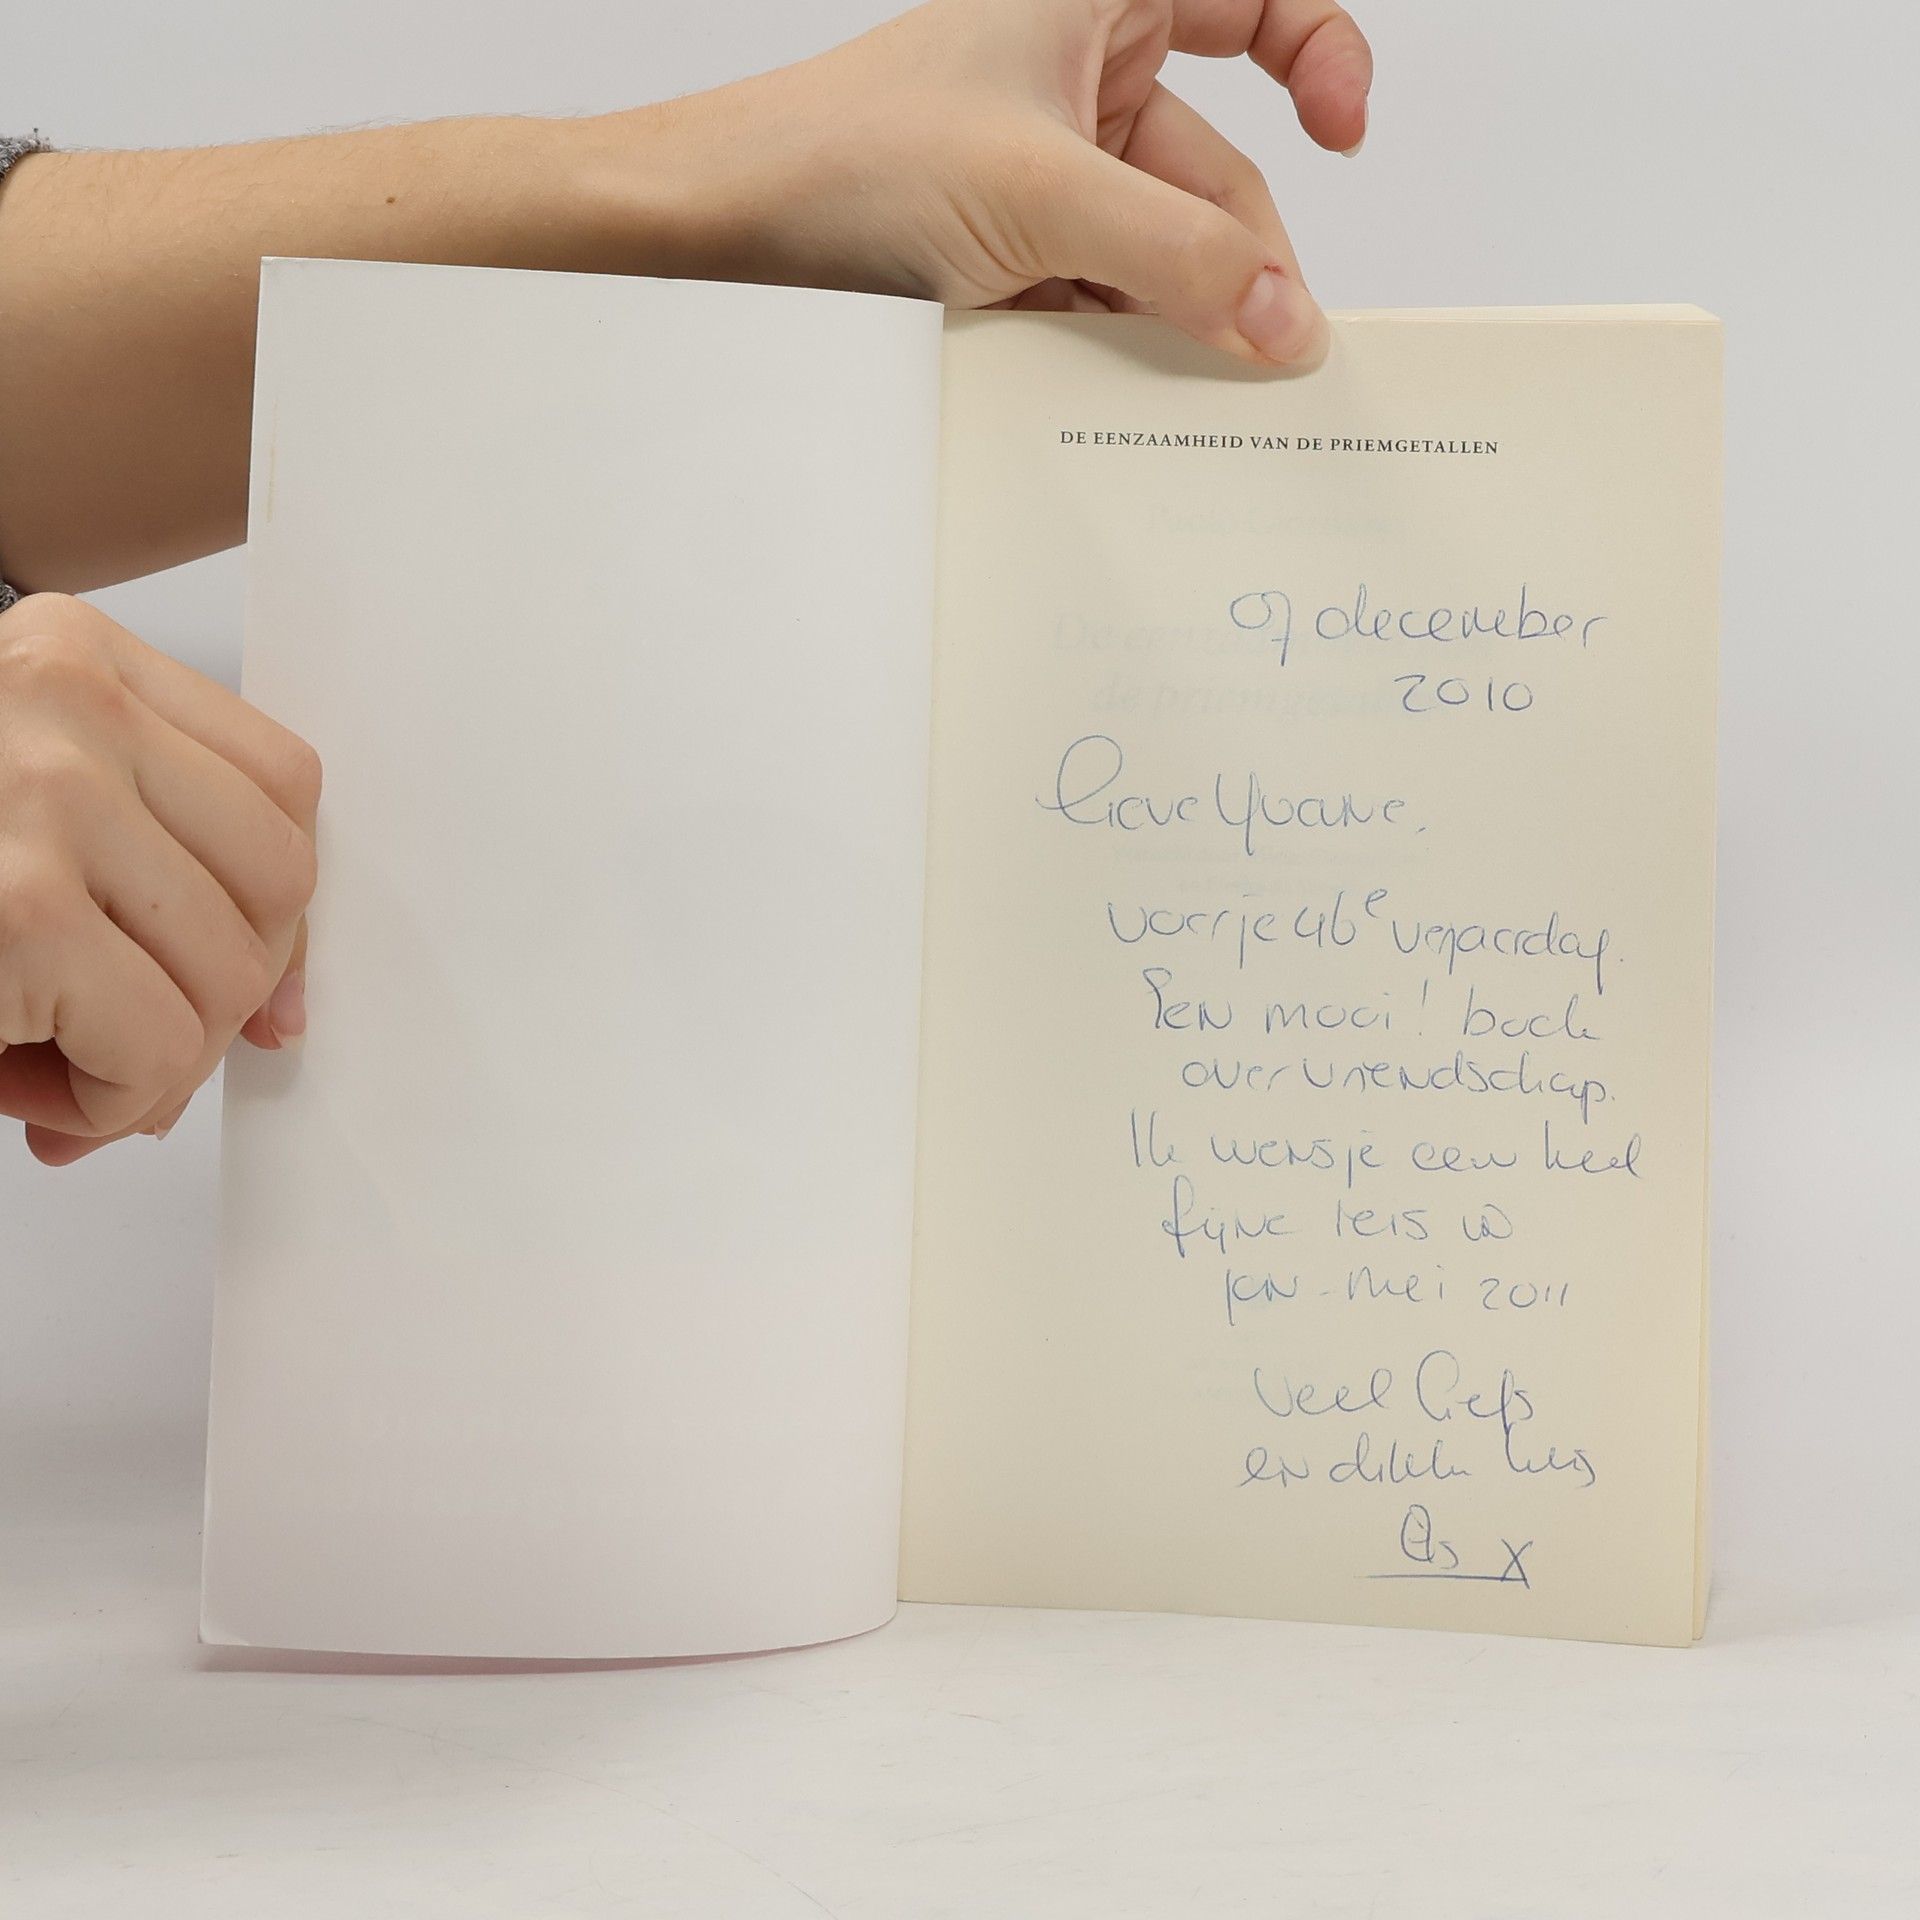 DE EENZAAMHEID VAN DE PRIEMGETALLEN
07 december
2010
Lieve Yvonne,
voor je 46e verjaardag.
Een mooi! boek
over vriendschap.
Ik wens je een heel
fijne reis in
jan - mei 2011
Veel liefs
en dikke kus
Els X